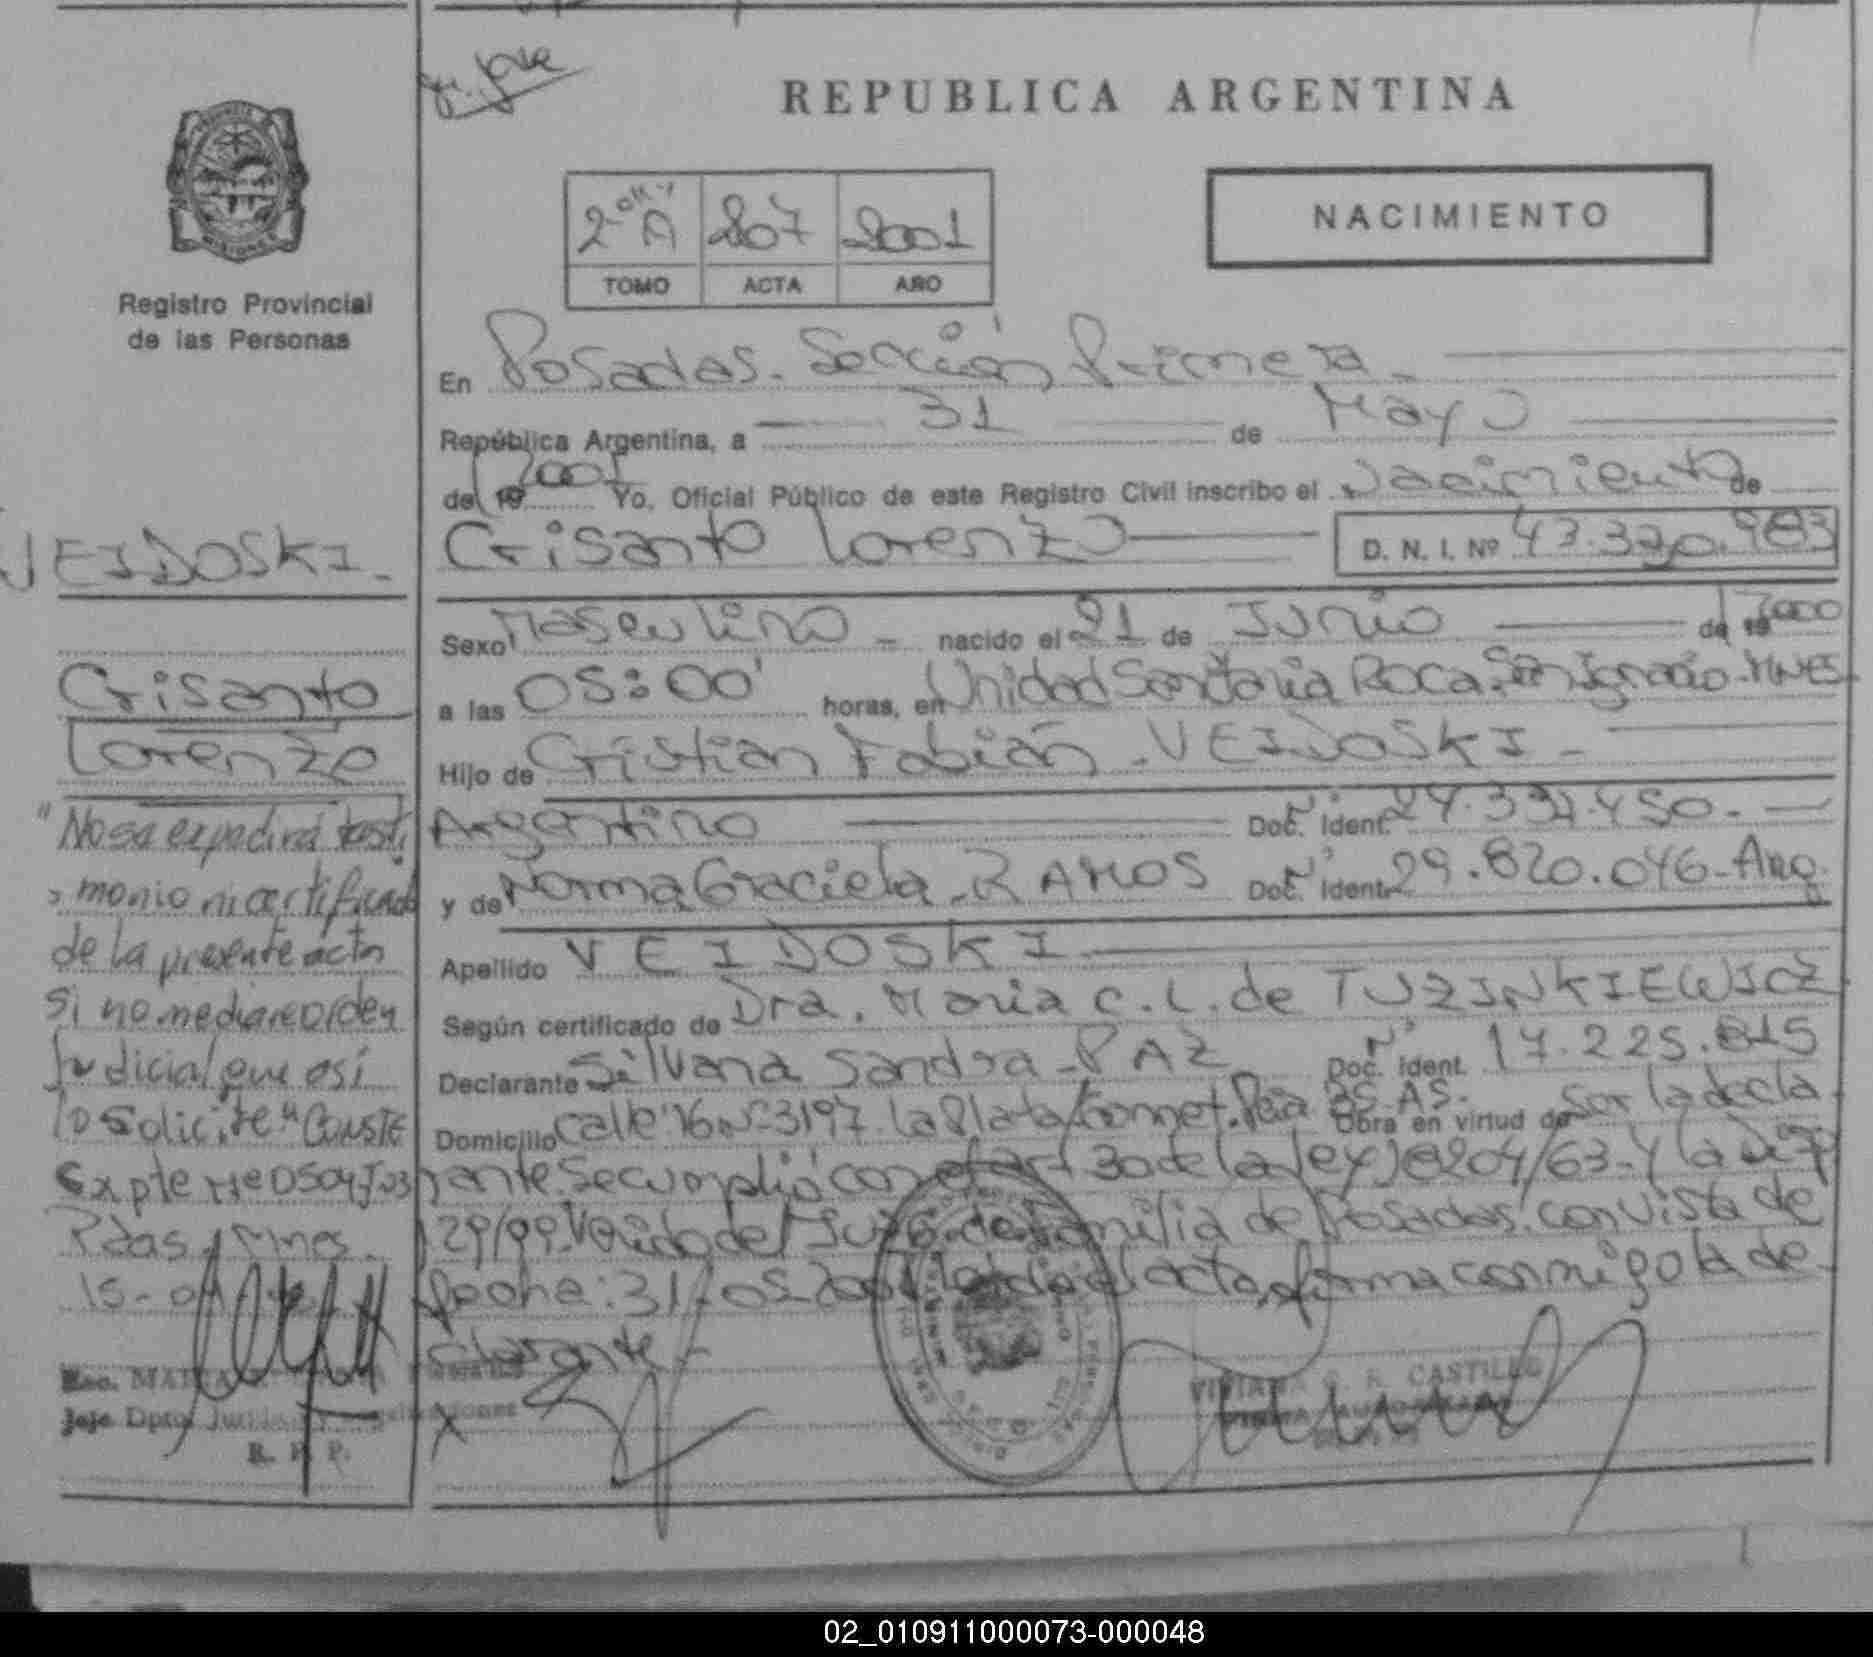 REPUBLICA ARGENTINA
NACIMIENTO
2º A 207 2001
TOMO ACTA AÑO
Registro Provincial
de las Personas
En Posadas. Sección Primera
República Argentina, a 31 de Mayo
de 19 2001 Yo, Oficial Público de este Registro Civil inscribo el Nacimiento de
Crisanto Lorenzo D. N. I. Nº 43.320.983
Sexo Masculino nacido el 21 de Junio de 19 2000
a las 05:00' horas, en Unidad Sanitaria Roca. San Ignacio. MNES
Hijo de Cristian Fabián - VEIDOSKI -
Argentino Doc. Ident. Nº 24.332.450. -
y de Norma Graciela - RAMOS Doc. Ident. Nº 29.820.046 - Arg.
Apellido VEIDOSKI
Según certificado de Dra. Maria C. L. de TUZINKIEWICZ
Declarante Silvana Sandra - PAZ Doc. Ident. Nº 17.225.815
Domicilio Calle 16 Nº 3197. La Plata Gonnet. Pcia BS. AS. Obra en virtud de Ser la decla
rante. Se cumplió con el art 30 de la ley) 8204/63 - y la Disp
29/99. Venido del Juzg. de Familia de Posadas. con vista de
fecha: 31-05-2001 leida el acta, firma conmigo la de
clarante -
VEIDOSKI -
Crisanto
Lorenzo
"No se expedirá testi
monio ni certificado
de la presente acta
si no mediare orden
judicial que así
lo solicite" CONSTE
Expte
Pdas, Mnes.
15-04
Esc.
Jefe Dpto.
R. P. P.
X
CASTILLO
02_010911000073-000048